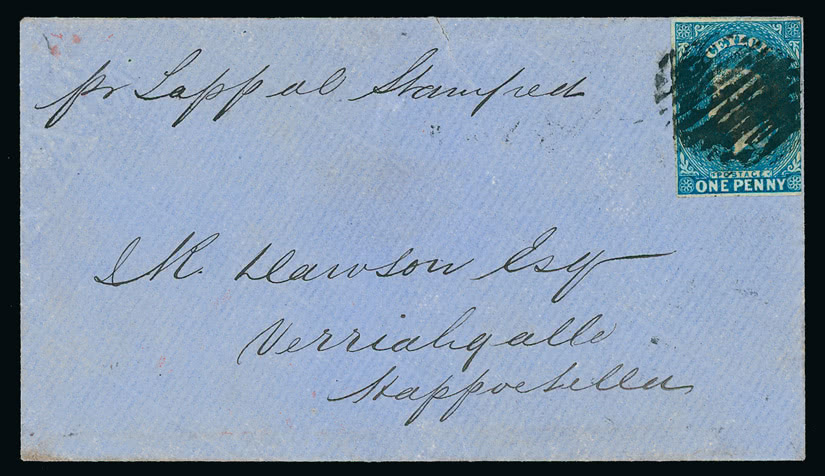 pr Tappal Stamped
CEYLON
POSTAGE
ONE PENNY
J K. Dawson Esq
Verriahgalle
Happootella